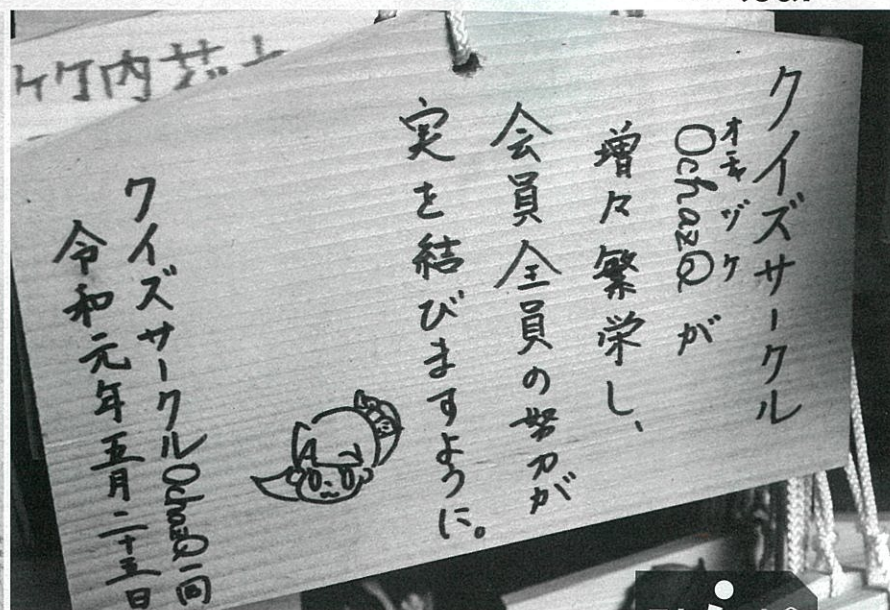 クイズサークル
オチャヅケ
OchazQが
増々繁栄し、
会員全員の努力が
実を結びますように。
クイズサークルOchazQ一同
令和元年五月二十五日
竹内